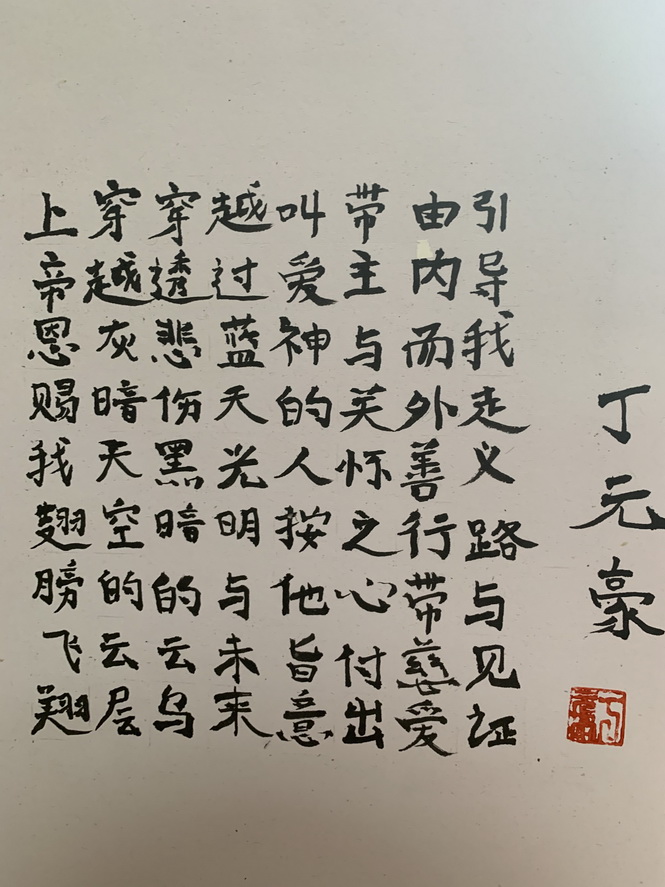 上帝恩赐我翅膀飞翔
穿越灰暗天空的云层
穿透悲伤黑暗的云乌
越过蓝天光明与未来
叫爱神的人按他旨意
带主与关怀之心付出
由内而外善行带慈爱
引导我走义路与见证
丁元豪